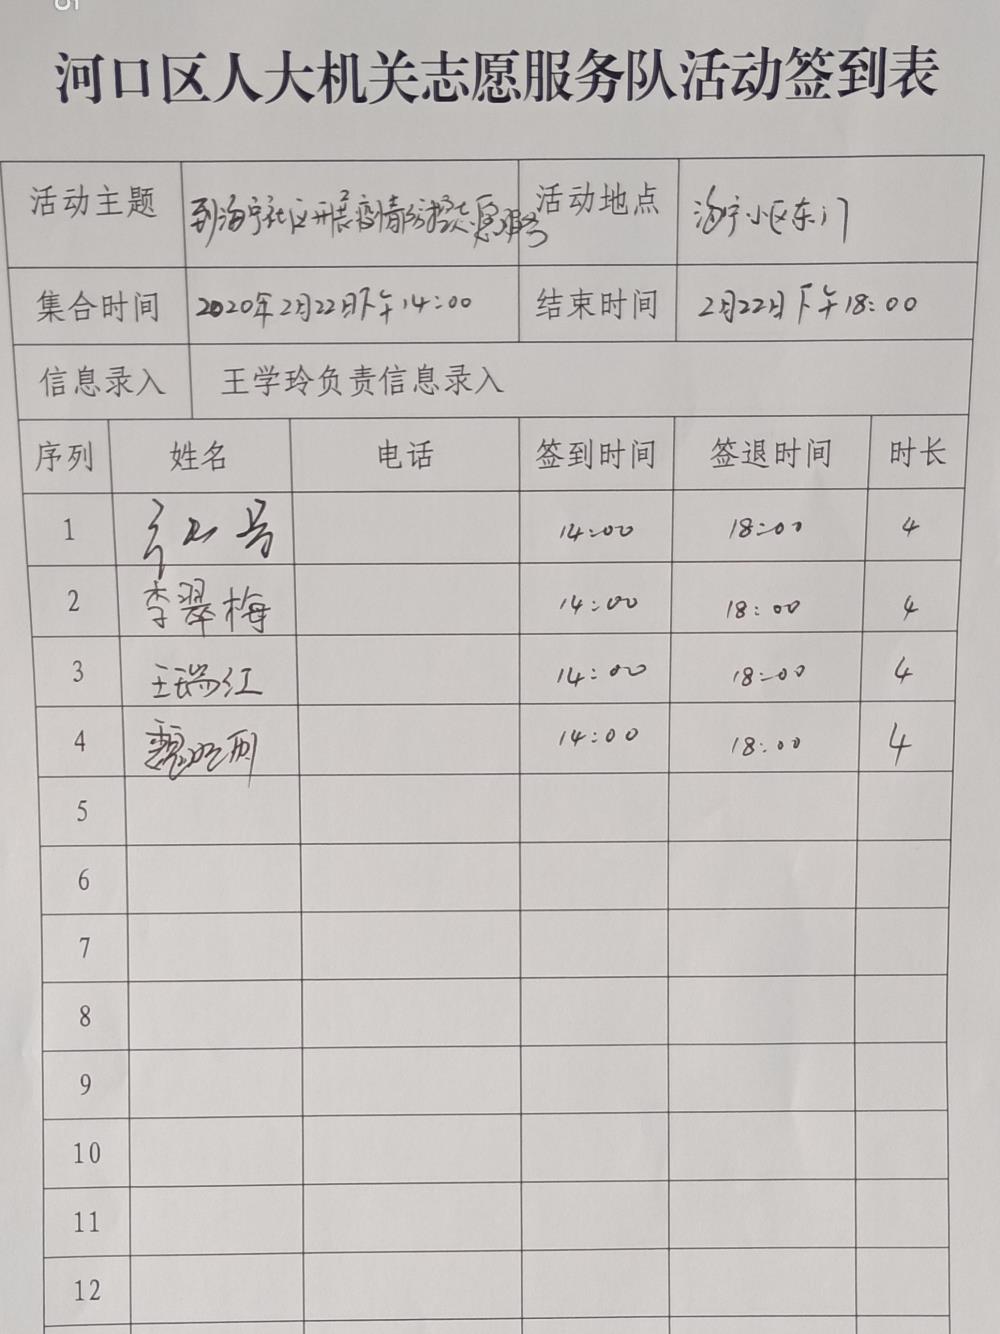 河口区人大机关志愿服务队活动签到表
活动主题 到海宁社区开展疫情防控志愿服务 活动地点 海宁小区东门
集合时间 2020年2月22日下午14:00 结束时间 2月22日下午18:00
信息录入 王学玲负责信息录入
序列 姓名 电话 签到时间 签退时间 时长
1 14:00 18:00 4
2 李翠梅 14:00 18:00 4
3 王瑞红 14:00 18:00 4
4 魏 14:00 18:00 4
5
6
7
8
9
10
11
12